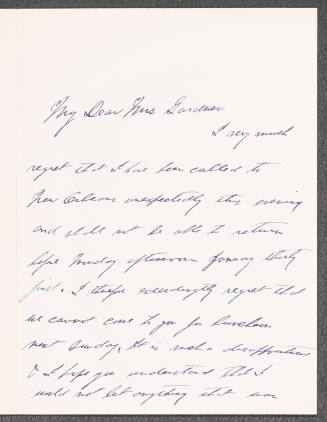 My Dear Mrs Gardner
I very much
regret that I have been called to
New Orleans unexpectedly this evening
and shall not be able to return
before Monday afternoon January thirty
first. I therefore exceedingly regret that
we cannot come to you for luncheon
next Sunday. It is such a disappointment
& I hope you understand that I
would not let anything that was